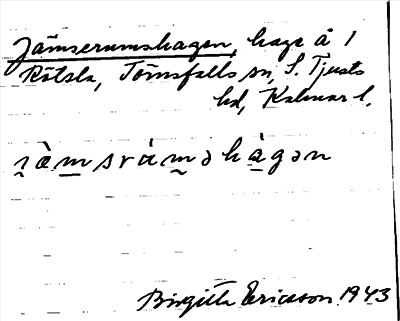 Jämserumshagen, hage å 1
Rötsla, Törnsfalls sn, S. Tjusts
hd, Kalmar l.
ı̰ä̀m̱srùm̰əhà̱gən
Birgitta Ericsson 1943